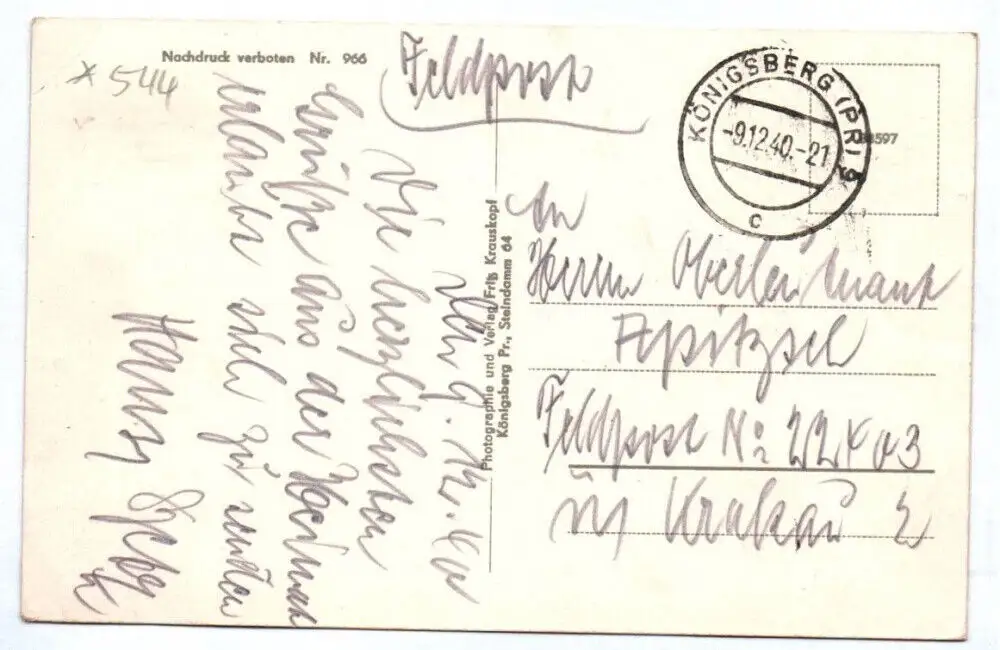 Nachdruck verboten Nr. 966
* 544
Feldpost
KÖNIGSBERG (PR) 9
-9.12.40.-21
c
597
Photographie und Verlag Fritz Krauskopf
Königsberg Pr., Steindamm 64
Den 9. 12. 40
Die herzlichsten
Grüße aus der Heimat
erlaubt sich zu senden
An
Herrn Oberleutnant
Apitzsch
Feldpost No 22403
in Krakau 2